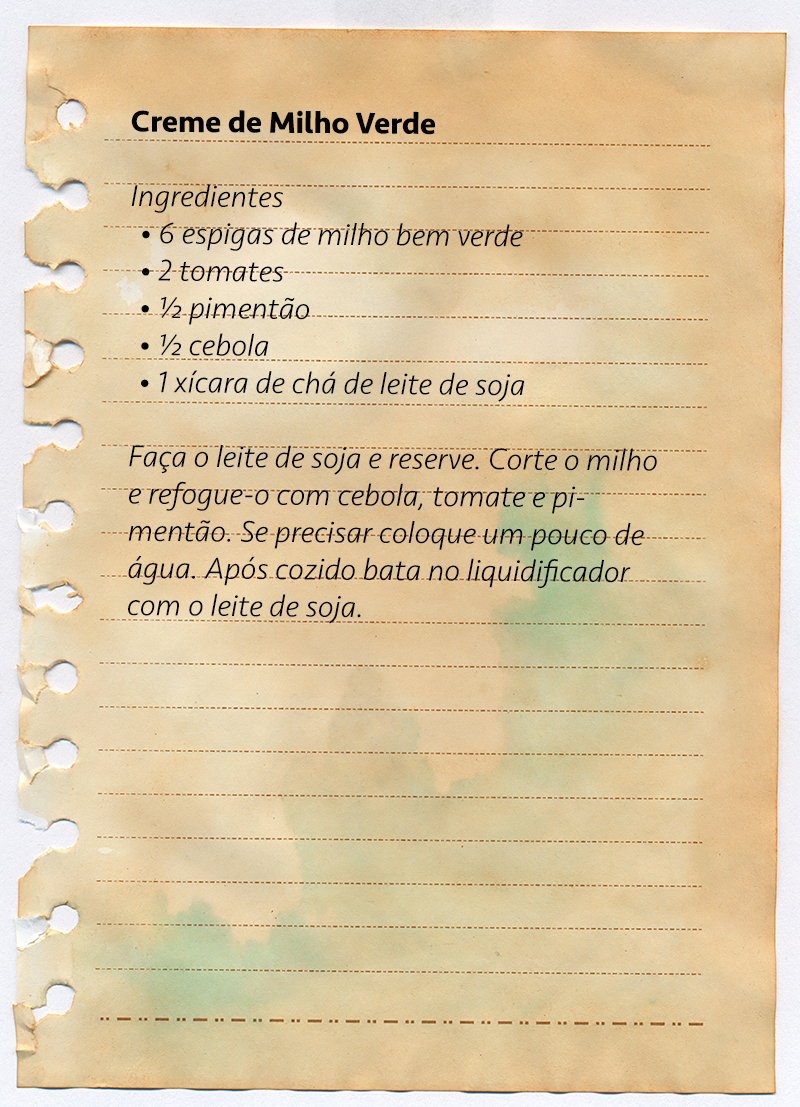 Creme de Milho Verde
Ingredientes
• 6 espigas de milho bem verde
• 2 tomates
• ½ pimentão
• ½ cebola
• 1 xícara de chá de leite de soja
Faça o leite de soja e reserve. Corte o milho
e refogue-o com cebola, tomate e pi-
mentão. Se precisar coloque um pouco de
água. Após cozido bata no liquidificador
com o leite de soja.